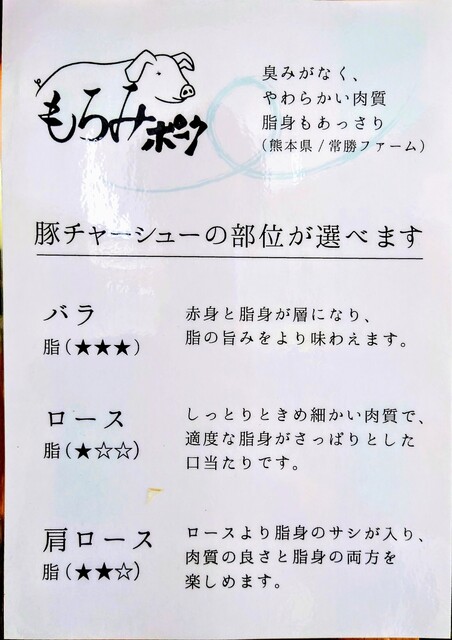 もろみポーク
臭みがなく、
やわらかい肉質
脂身もあっさり
(熊本県/常勝ファーム)
豚チャーシューの部位が選べます
バラ
脂(★★★)
赤身と脂身が層になり、
脂の旨みをより味わえます。
ロース
脂(★☆☆)
しっとりときめ細かい肉質で、
適度な脂身がさっぱりとした
口当たりです。
肩ロース
脂(★★☆)
ロースより脂身のサシが入り、
肉質の良さと脂身の両方を
楽しめます。